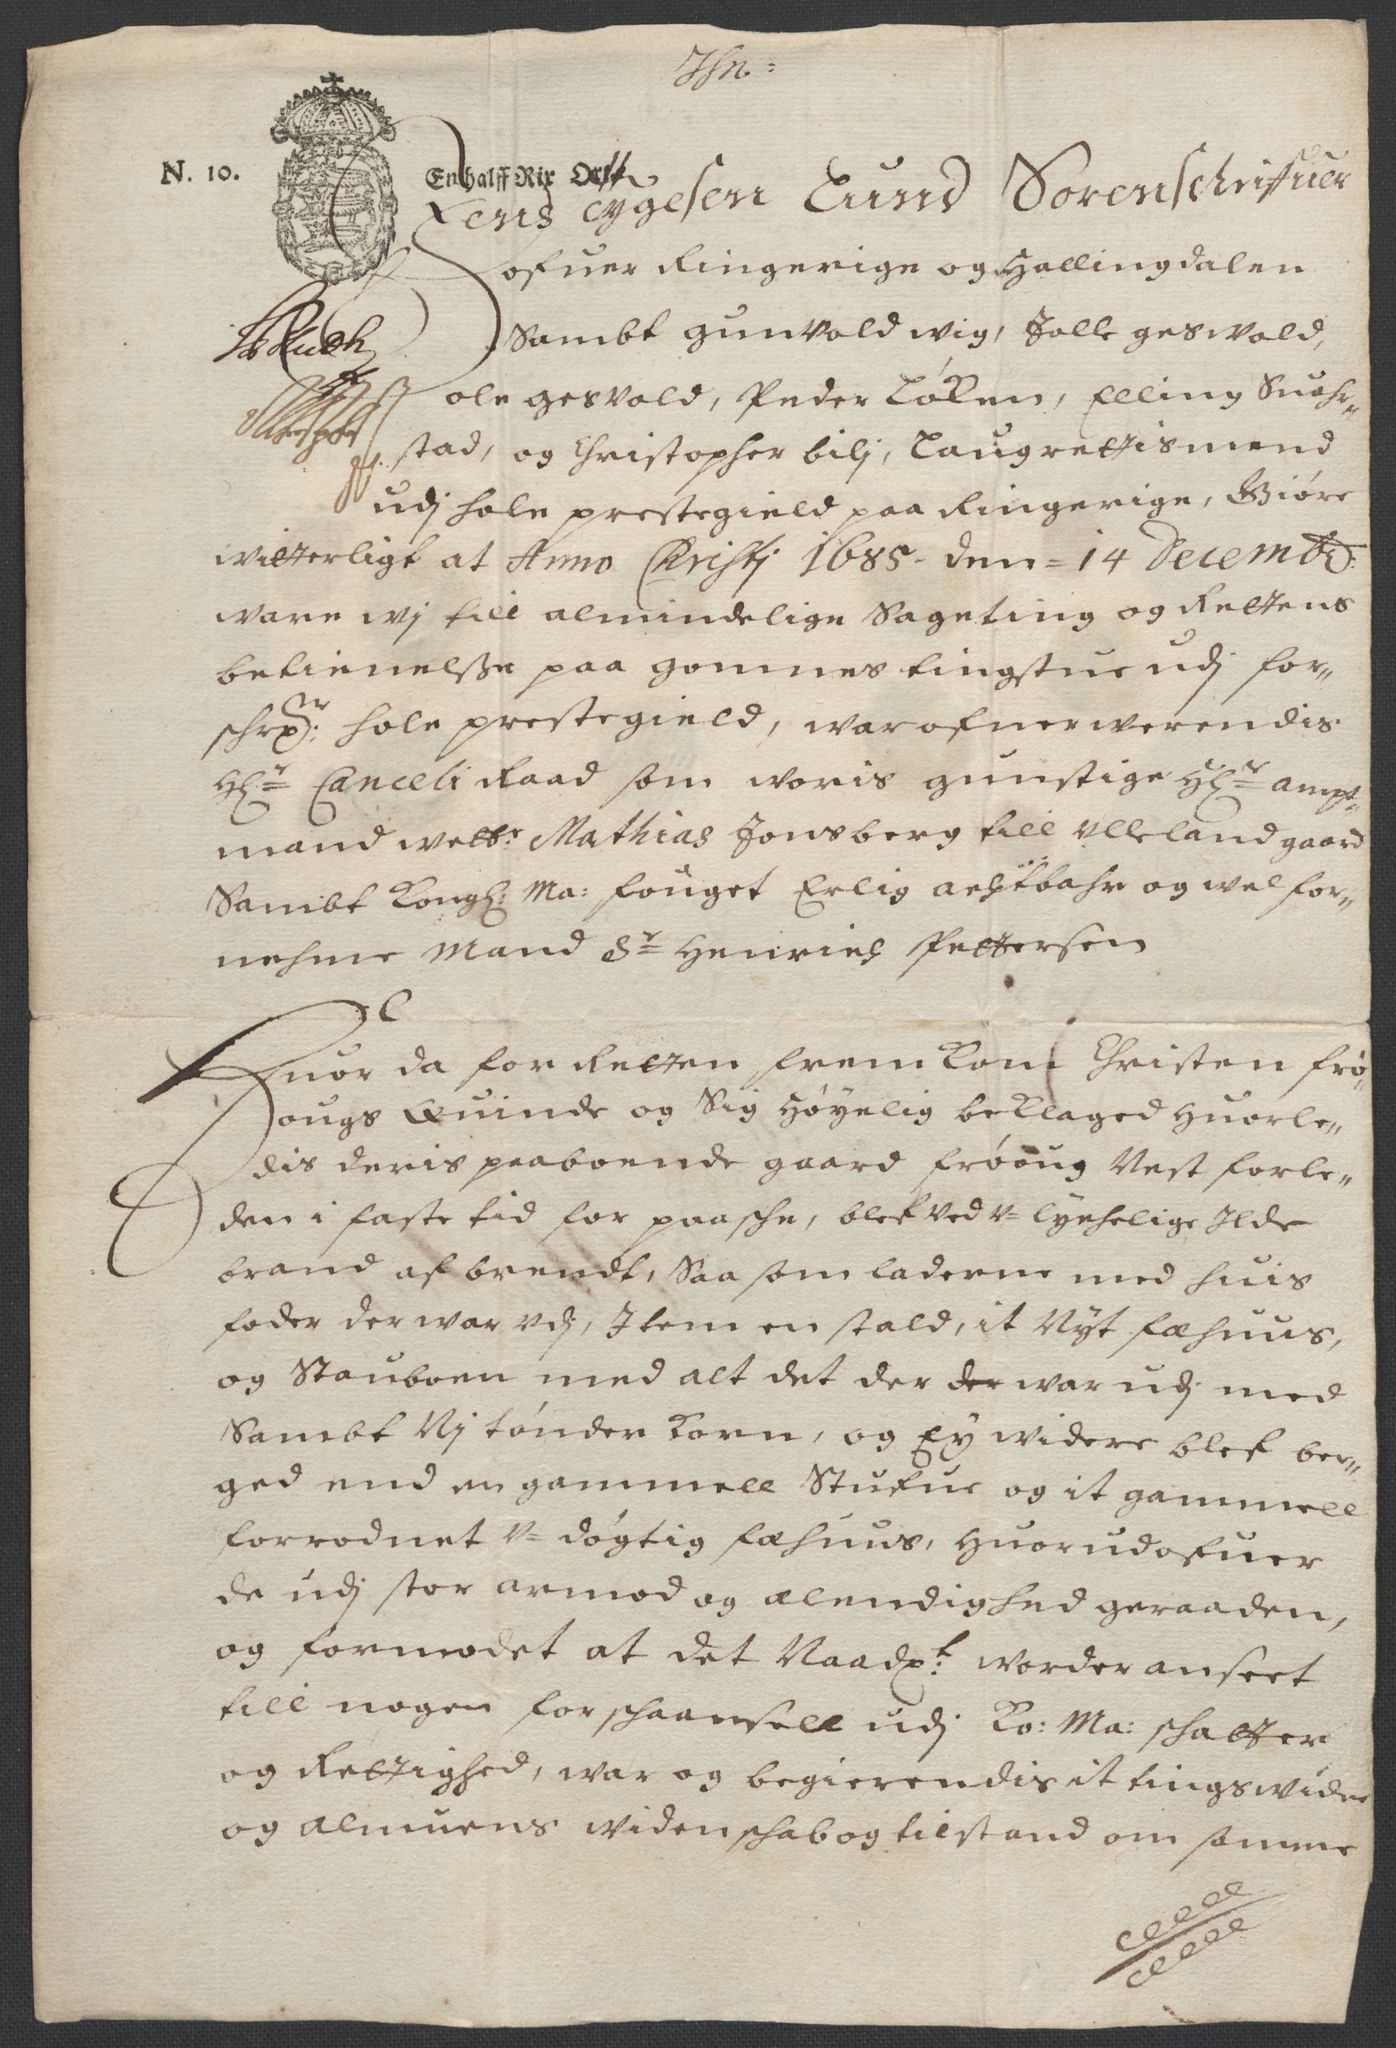 Jhn:
N. 10.
En halff Rix Ort
Jens Tygesen Lund Sorenschriffuer
ofuer Ringerige og Hallingdalen
Sambt gunvold wig, Jolle gesvold,
ole gesvold, Peder Løken, Elling Suohr„
stad, og Christopher bilj, Laugrettismend
udj hole prestegield paa Ringerige, Giøre
witterligt at Anno Christi 1685 - den = 14 Decemb:
ware wj till almindelige Sageting og Rettens
betienelsse paa gomnes tingstue udj for„
schr: hole prestegield, war ofuerwerendis
Hr: Canceli Raad som woris gunstige Hr: ampt„
mand welb: Mathias Jonsberg till Ulleland gaard
Sambt Kongl: Ma: fouget Erlig achtbahr og wel for„
nehme Mand Sr Henrich Pettersen
Huor da for Retten frem kom Christen frø„
ougs Quinde og Sig Høyelig beklaged Huorle„
dis deris paaboende gaard frøoug Nest forle„
den i faste tid for paasche, blef ved v= lychelige Ilde
brand af brendt, Saa som laderne med huis
foder der war vdj, Item en stald, it Nyt fæhuus,
og Stauboen med alt det der der war udj med
Sambt Nj tønder korn, og Ey widere blef ber„
ged end en gammell Stufue og it gammell
forrodnet v= døgtig fæhuus, Huorudofuer
de udj stor armod og ælendighed geraaden,
og formodet at det Naad: worder anseet
till nogen forschaansell udj Ko: Ma: schatter
og Rettighed, war og begierendis it tingswidne
og almuens widenschab og tilstand om samme